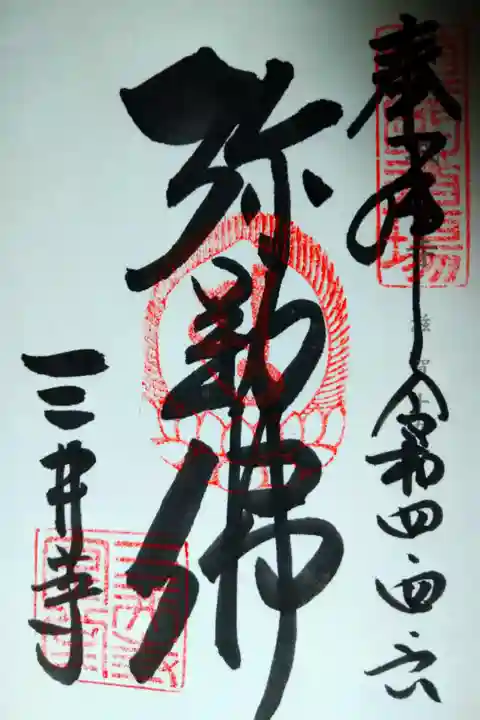 奉拝 令和四・四・六
弥勒佛
三井寺